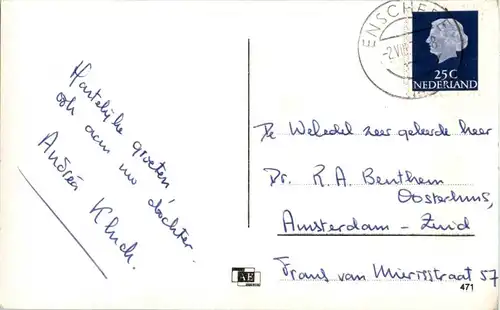 Hartelijke groeten,
ook aan uw dochter.
Andréa Kluch.
ENSCHEDE
-2.VIII
25C
NEDERLAND
De Weledel zeer geleerde heer
Dr. R. A. Benthem
Oosterhuis,
Amsterdam - Zuid
Frans van Mierisstraat 57
471